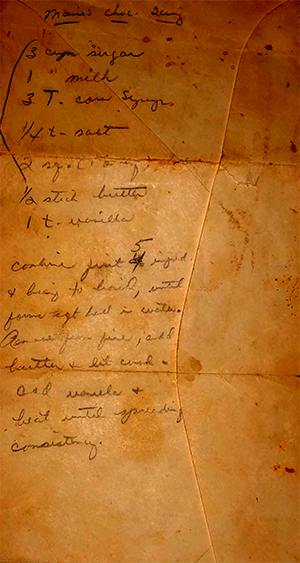 Marie's choc. Icing
3 cups sugar
1 " milk
3 T. corn syrup
1/4 t. salt
2 sq.
1/2 stick butter
1 t. vanilla
5
combine first 4 ingred
& bring to boil, until
forms sft ball in water.
Remove from fire, add
butter & let cool.
add vanilla &
beat until spreading
consistency.